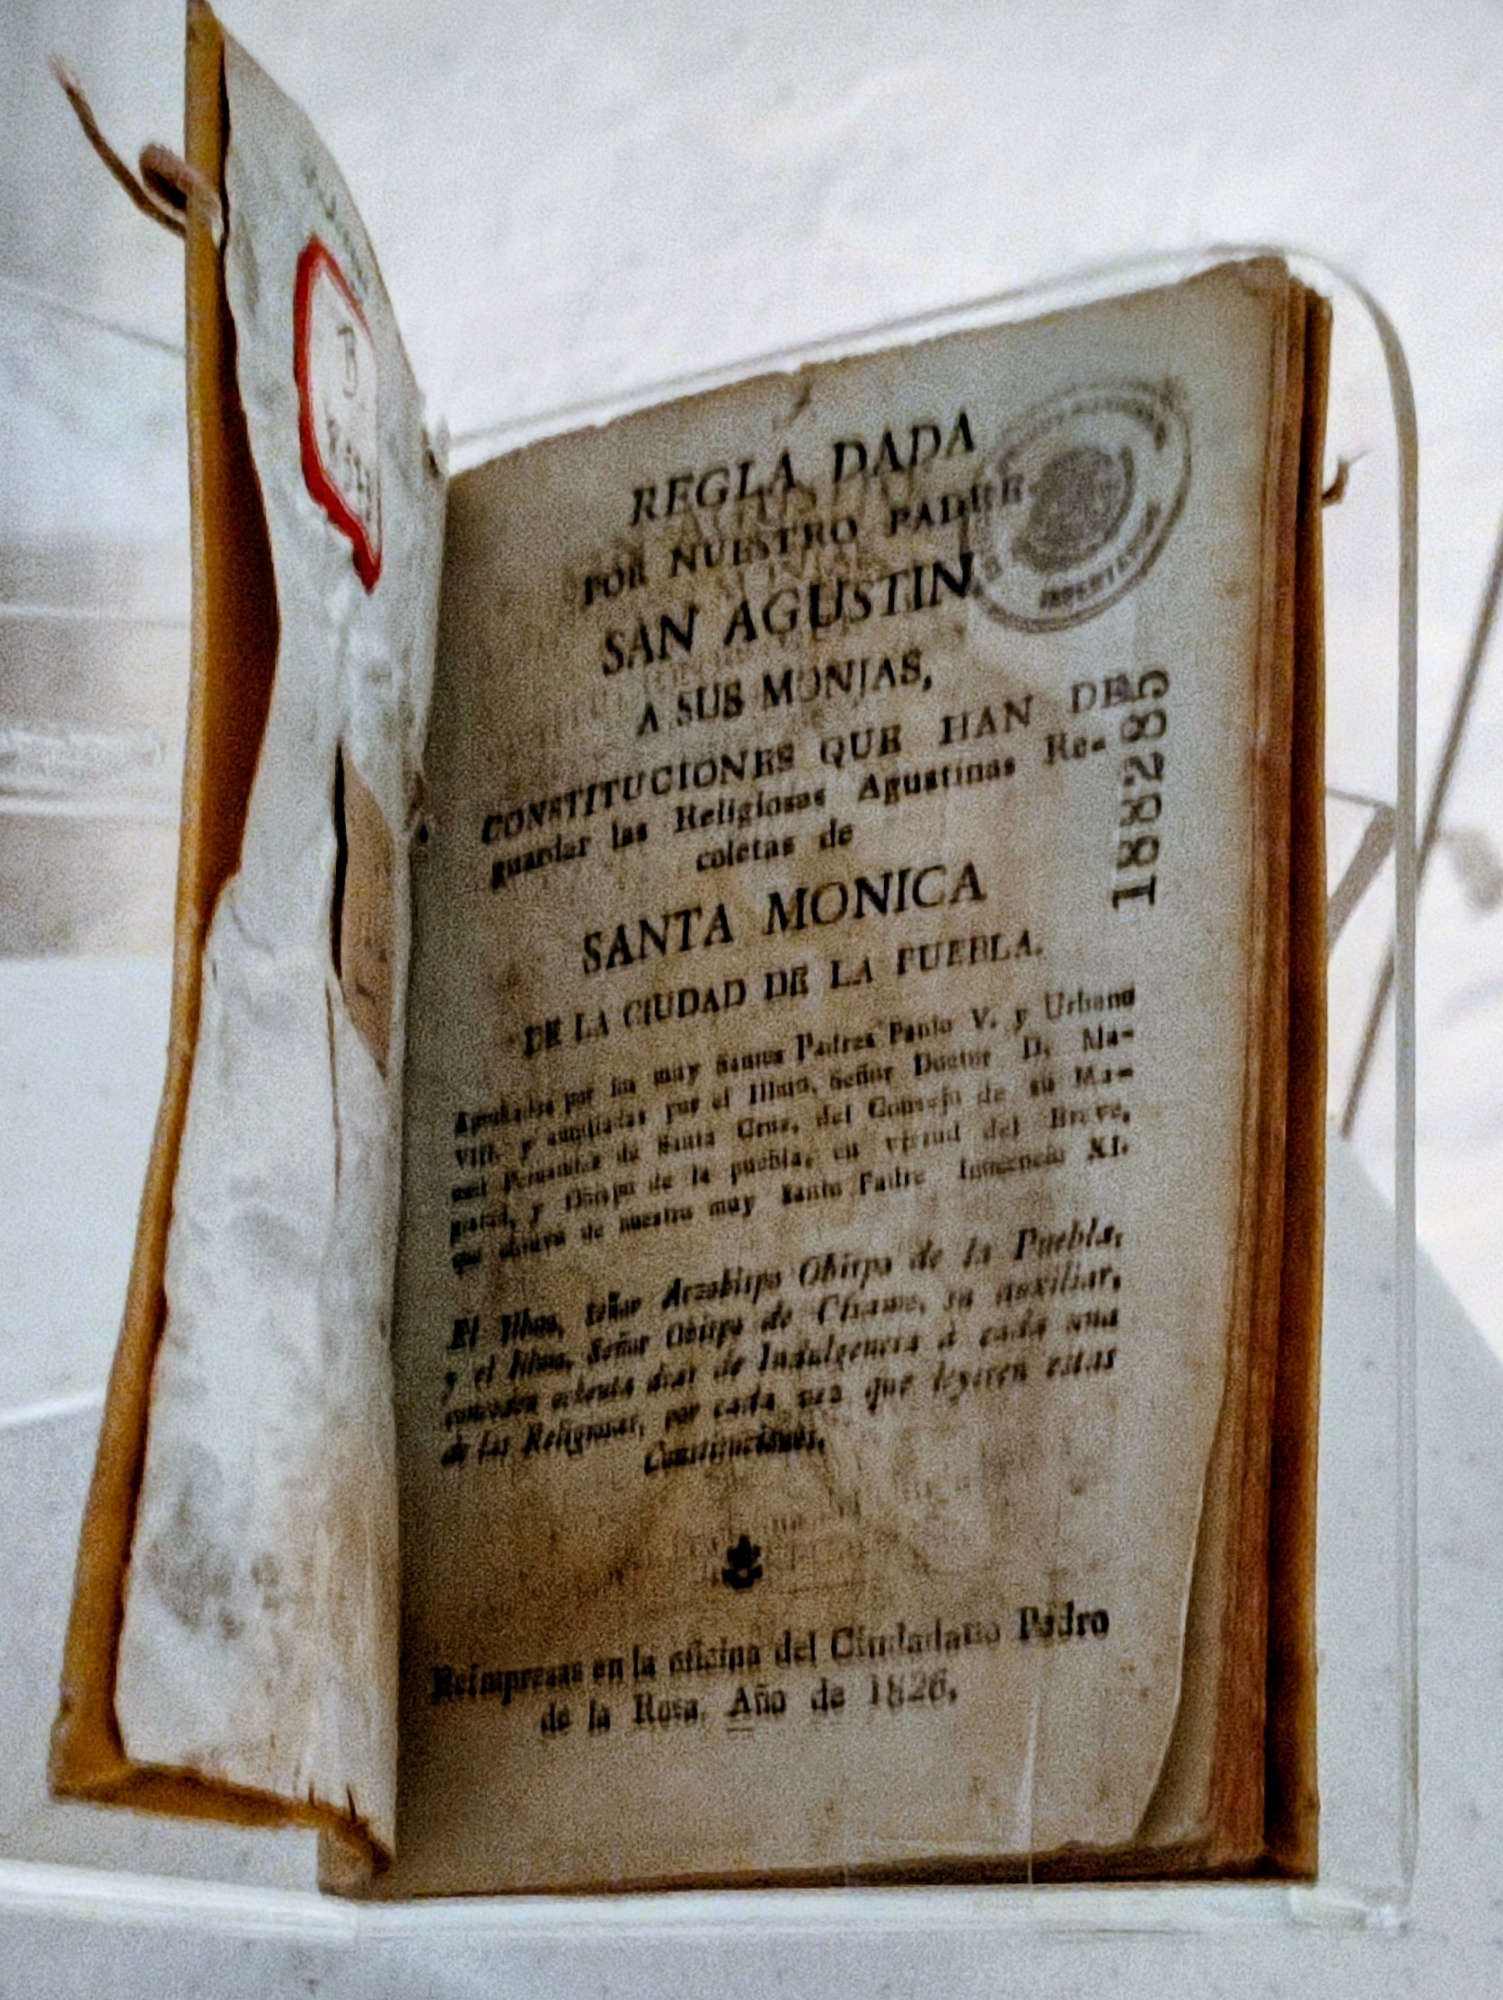 REGLA DADA
POR NUESTRO PADRE
SAN AGUSTIN
A SUS MONJAS,
CONSTITUCIONES QUE HAN DE
guardar las Religiosas Agustinas Re-
coletas de
SANTA MONICA
DE LA CIUDAD DE LA PUEBLA.
Aprobadas por los muy Santos Padres Paulo V. y Urbano
VIII. y ampliadas por el Illmo. Señor Doctor D. Ma-
nuel Fernandez de Santa Cruz, del Consejo de su Ma-
gestad, y Obispo de la puebla, en virtud del Breve,
que obtuvo de nuestro muy Santo Padre Inocencio XI.
El Illmo. Señor Arzobispo Obispo de la Puebla,
y el Illmo. Señor Obispo de Chiame, su auxiliar,
conceden ochenta dias de Indulgencia á cada una
de las Religiosas, por cada vez que leyeren estas
Constituciones.
Reimpresas en la oficina del Ciudadano Pedro
de la Rosa, Año de 1826.
188285